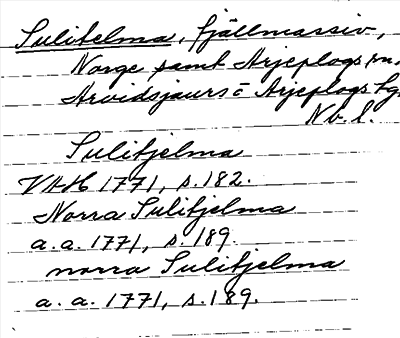 Sulitelma, fjällmassiv,
Norge samt Arjeplogs sn,
Arvidsjaurs o Arjeplogs tg
Nb. l.
Sulitjelma
VAH 1771, s. 182.
Norra Sulitjelma
a. a. 1771, s. 189.
norra Sulitjelma
a. a. 1771, s. 189.